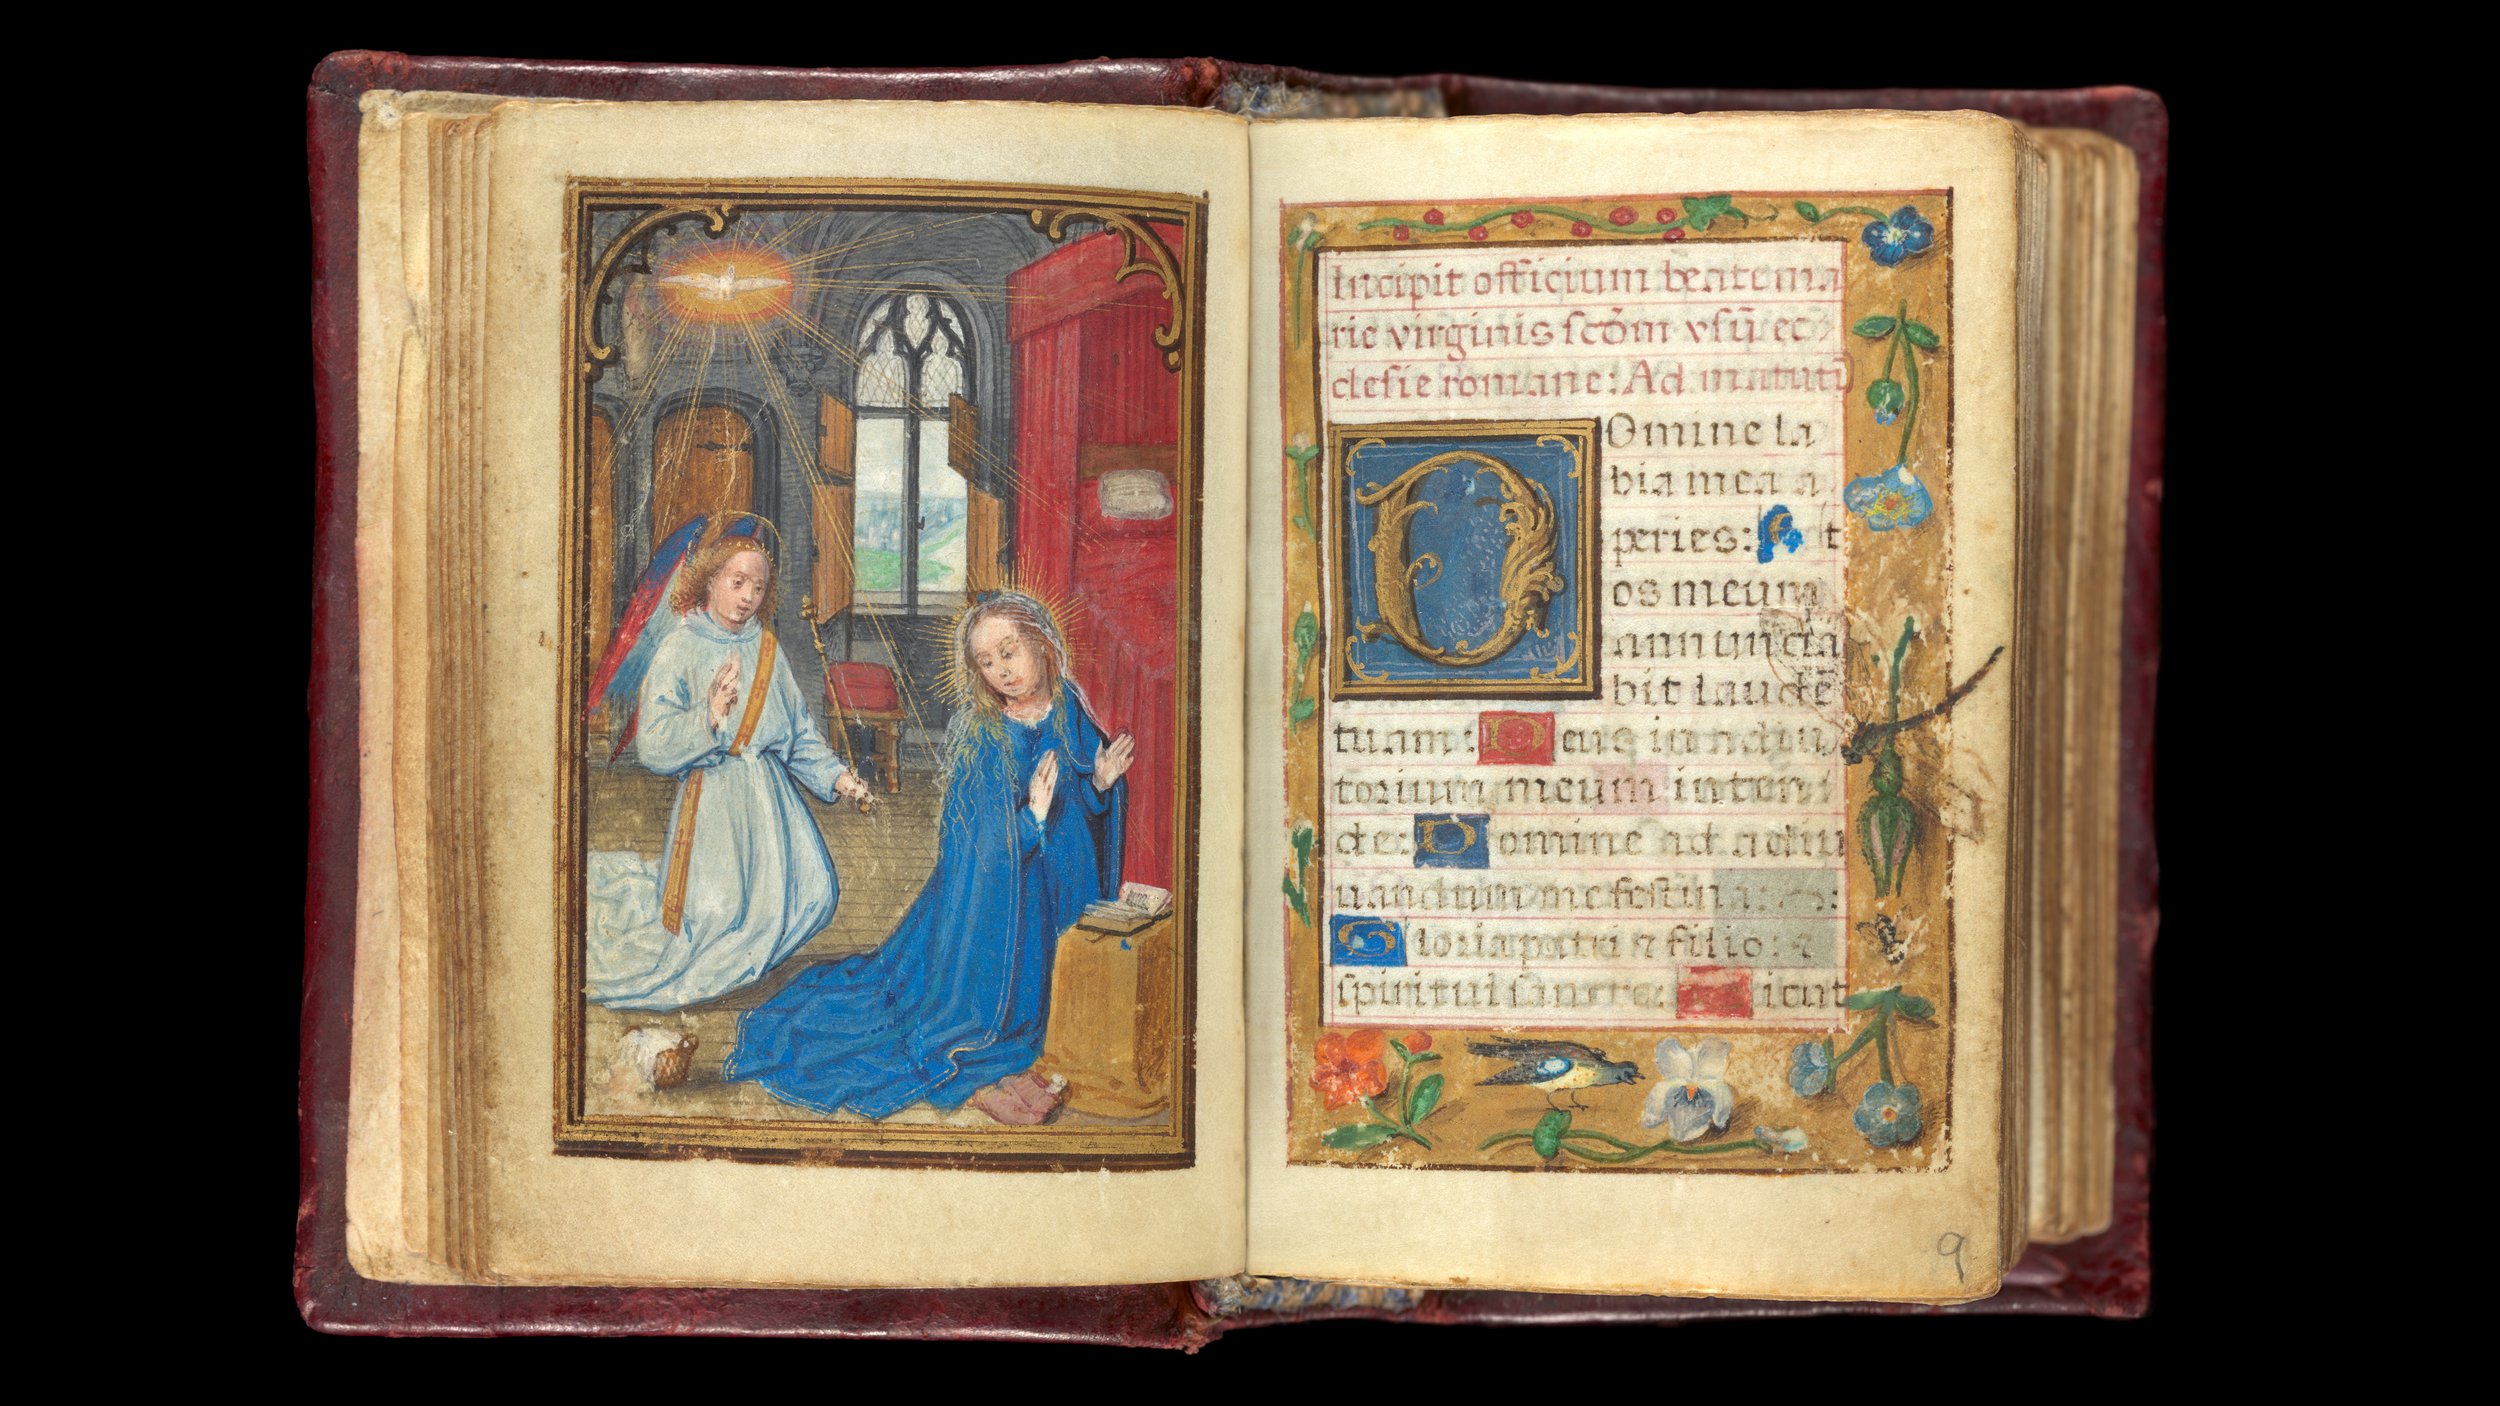 Incipit officium beate ma
rie virginis scđm vsū ec
clesie romane: Ad matutī
DOmine la
bia mea a
peries: Et
os meum
annuncia
bit laudē
tuam: Deus in adiu
torium meum inten
de: Domine ad adiu
uandum me festina:
Gloria patri et filio: et
spiritui sancto: Sicut
9